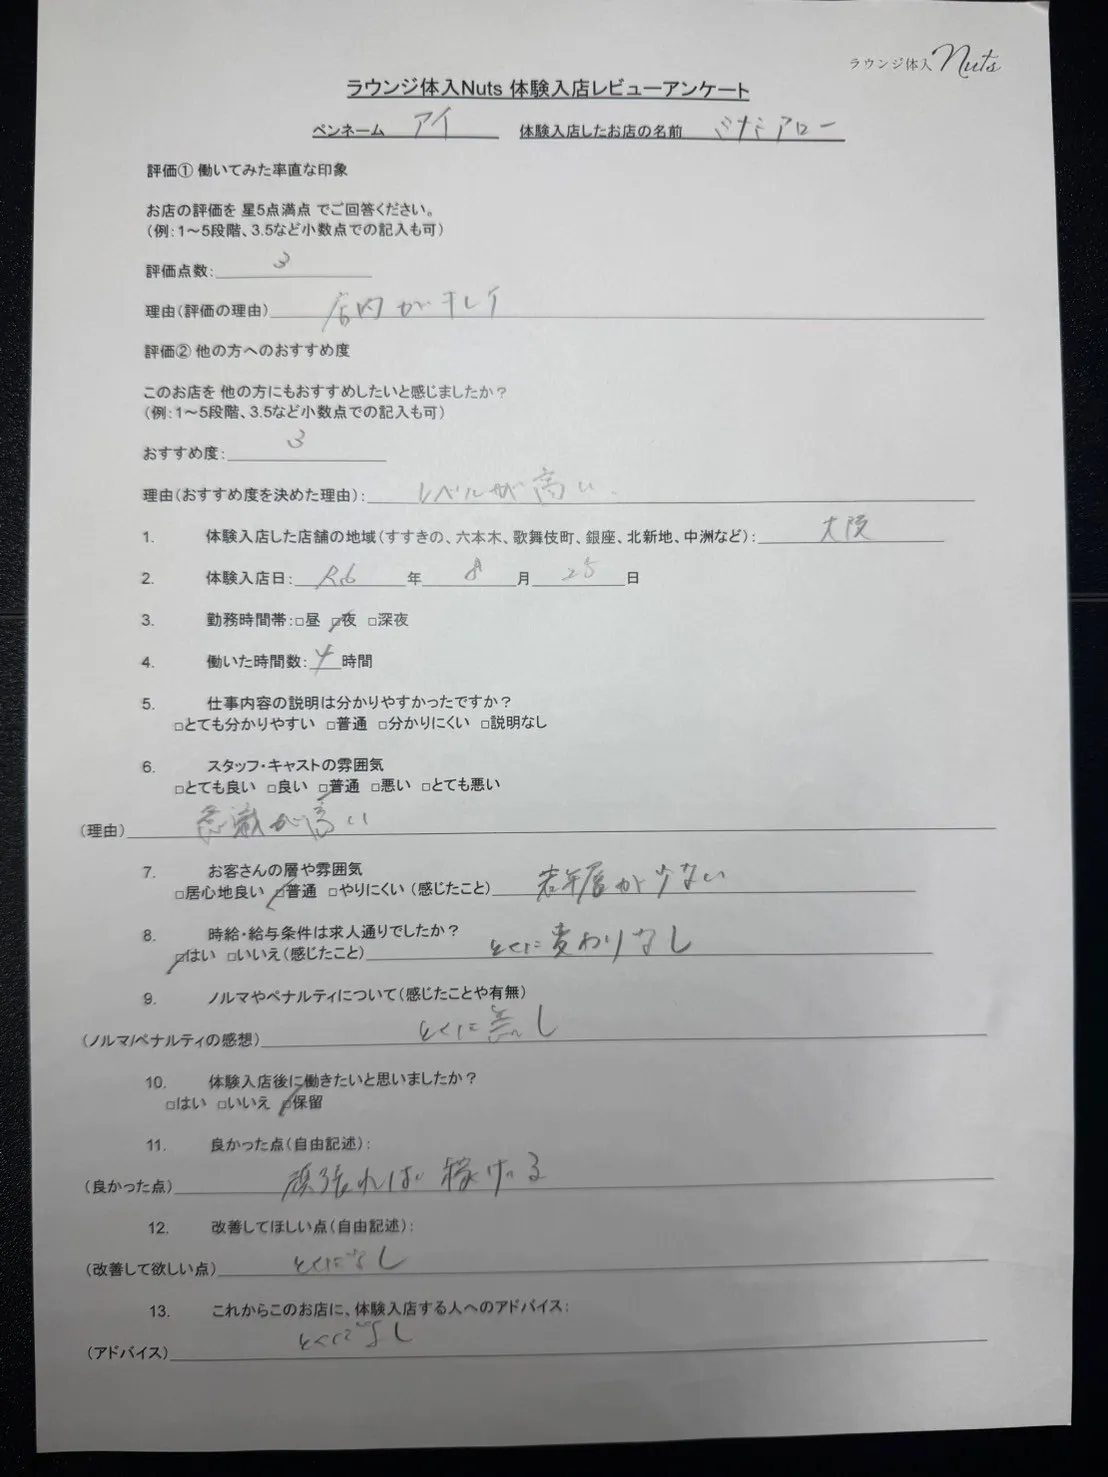 ラウンジ体入 Nuts
ラウンジ体入Nuts 体験入店レビューアンケート
ペンネーム アイ 体験入店したお店の名前 ミナミアロー
評価① 働いてみた率直な印象
お店の評価を 星5点満点 でご回答ください。
(例:1～5段階、3.5など小数点での記入も可)
評価点数: 3
理由(評価の理由) 店内がキレイ
評価② 他の方へのおすすめ度
このお店を 他の方にもおすすめしたいと感じましたか?
(例:1～5段階、3.5など小数点での記入も可)
おすすめ度: 3
理由(おすすめ度を決めた理由): レベルが高い.
1. 体験入店した店舗の地域(すすきの、六本木、歌舞伎町、銀座、北新地、中洲など): 大阪
2. 体験入店日: R6 年 8 月 25 日
3. 勤務時間帯:□昼 □夜 □深夜
4. 働いた時間数: 4 時間
5. 仕事内容の説明は分かりやすかったですか?
□とても分かりやすい □普通 □分かりにくい □説明なし
6. スタッフ・キャストの雰囲気
□とても良い □良い □普通 □悪い □とても悪い
(理由) 意識が高い
7. お客さんの層や雰囲気
□居心地良い □普通 □やりにくい (感じたこと) 若年層が少ない
8. 時給・給与条件は求人通りでしたか?
□はい □いいえ(感じたこと) とくに変わりなし
9. ノルマやペナルティについて(感じたことや有無)
(ノルマ/ペナルティの感想) とくに無し
10. 体験入店後に働きたいと思いましたか?
□はい □いいえ □保留
11. 良かった点(自由記述):
(良かった点) 頑張れば稼げる
12. 改善してほしい点(自由記述):
(改善して欲しい点) とくになし
13. これからこのお店に、体験入店する人へのアドバイス:
(アドバイス) とくになし